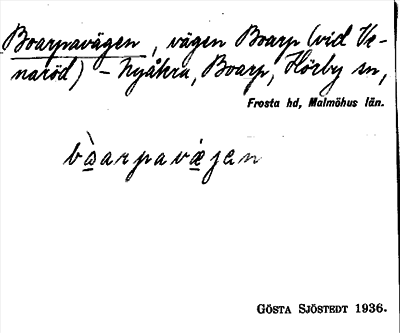 Boarpavägen, vägen Boarp (vid Ve-
naröd) – Nyåkra, Boarp, Hörby sn,
Frosta hd, Malmöhus län.
bòarpavæjen
GÖSTA SJÖSTEDT 1936.